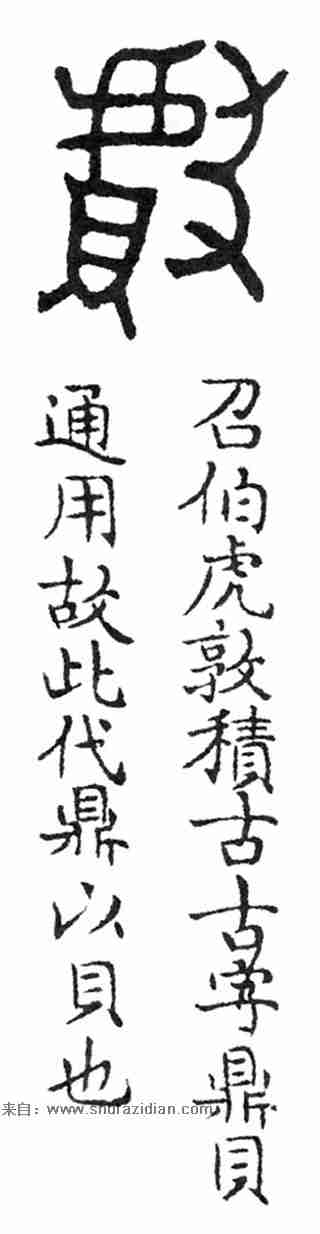 召伯虎敦積古古字鼎貝
通用故此代鼎以貝也
来自：www.shufazidian.com